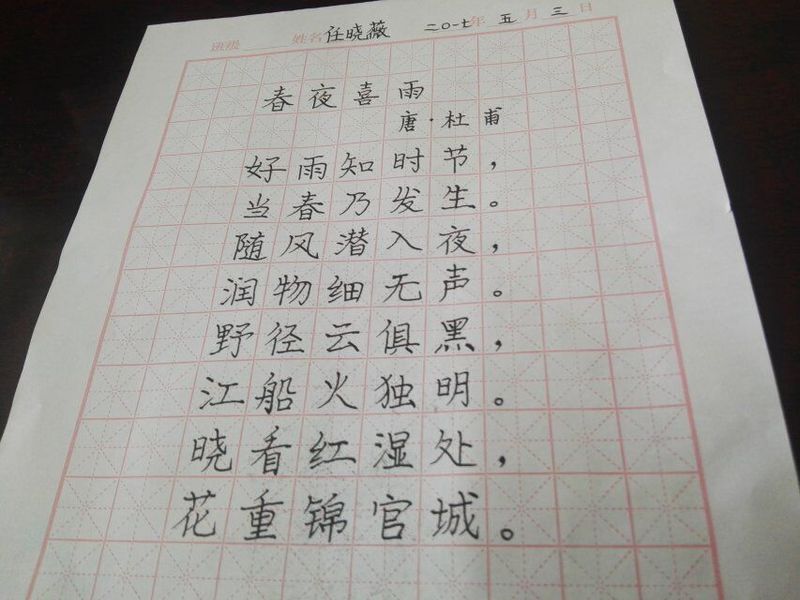 班级 姓名 任晓薇 二〇一七年 五 月 三 日
春夜喜雨
唐·杜甫
好雨知时节，
当春乃发生。
随风潜入夜，
润物细无声。
野径云俱黑，
江船火独明。
晓看红湿处，
花重锦官城。